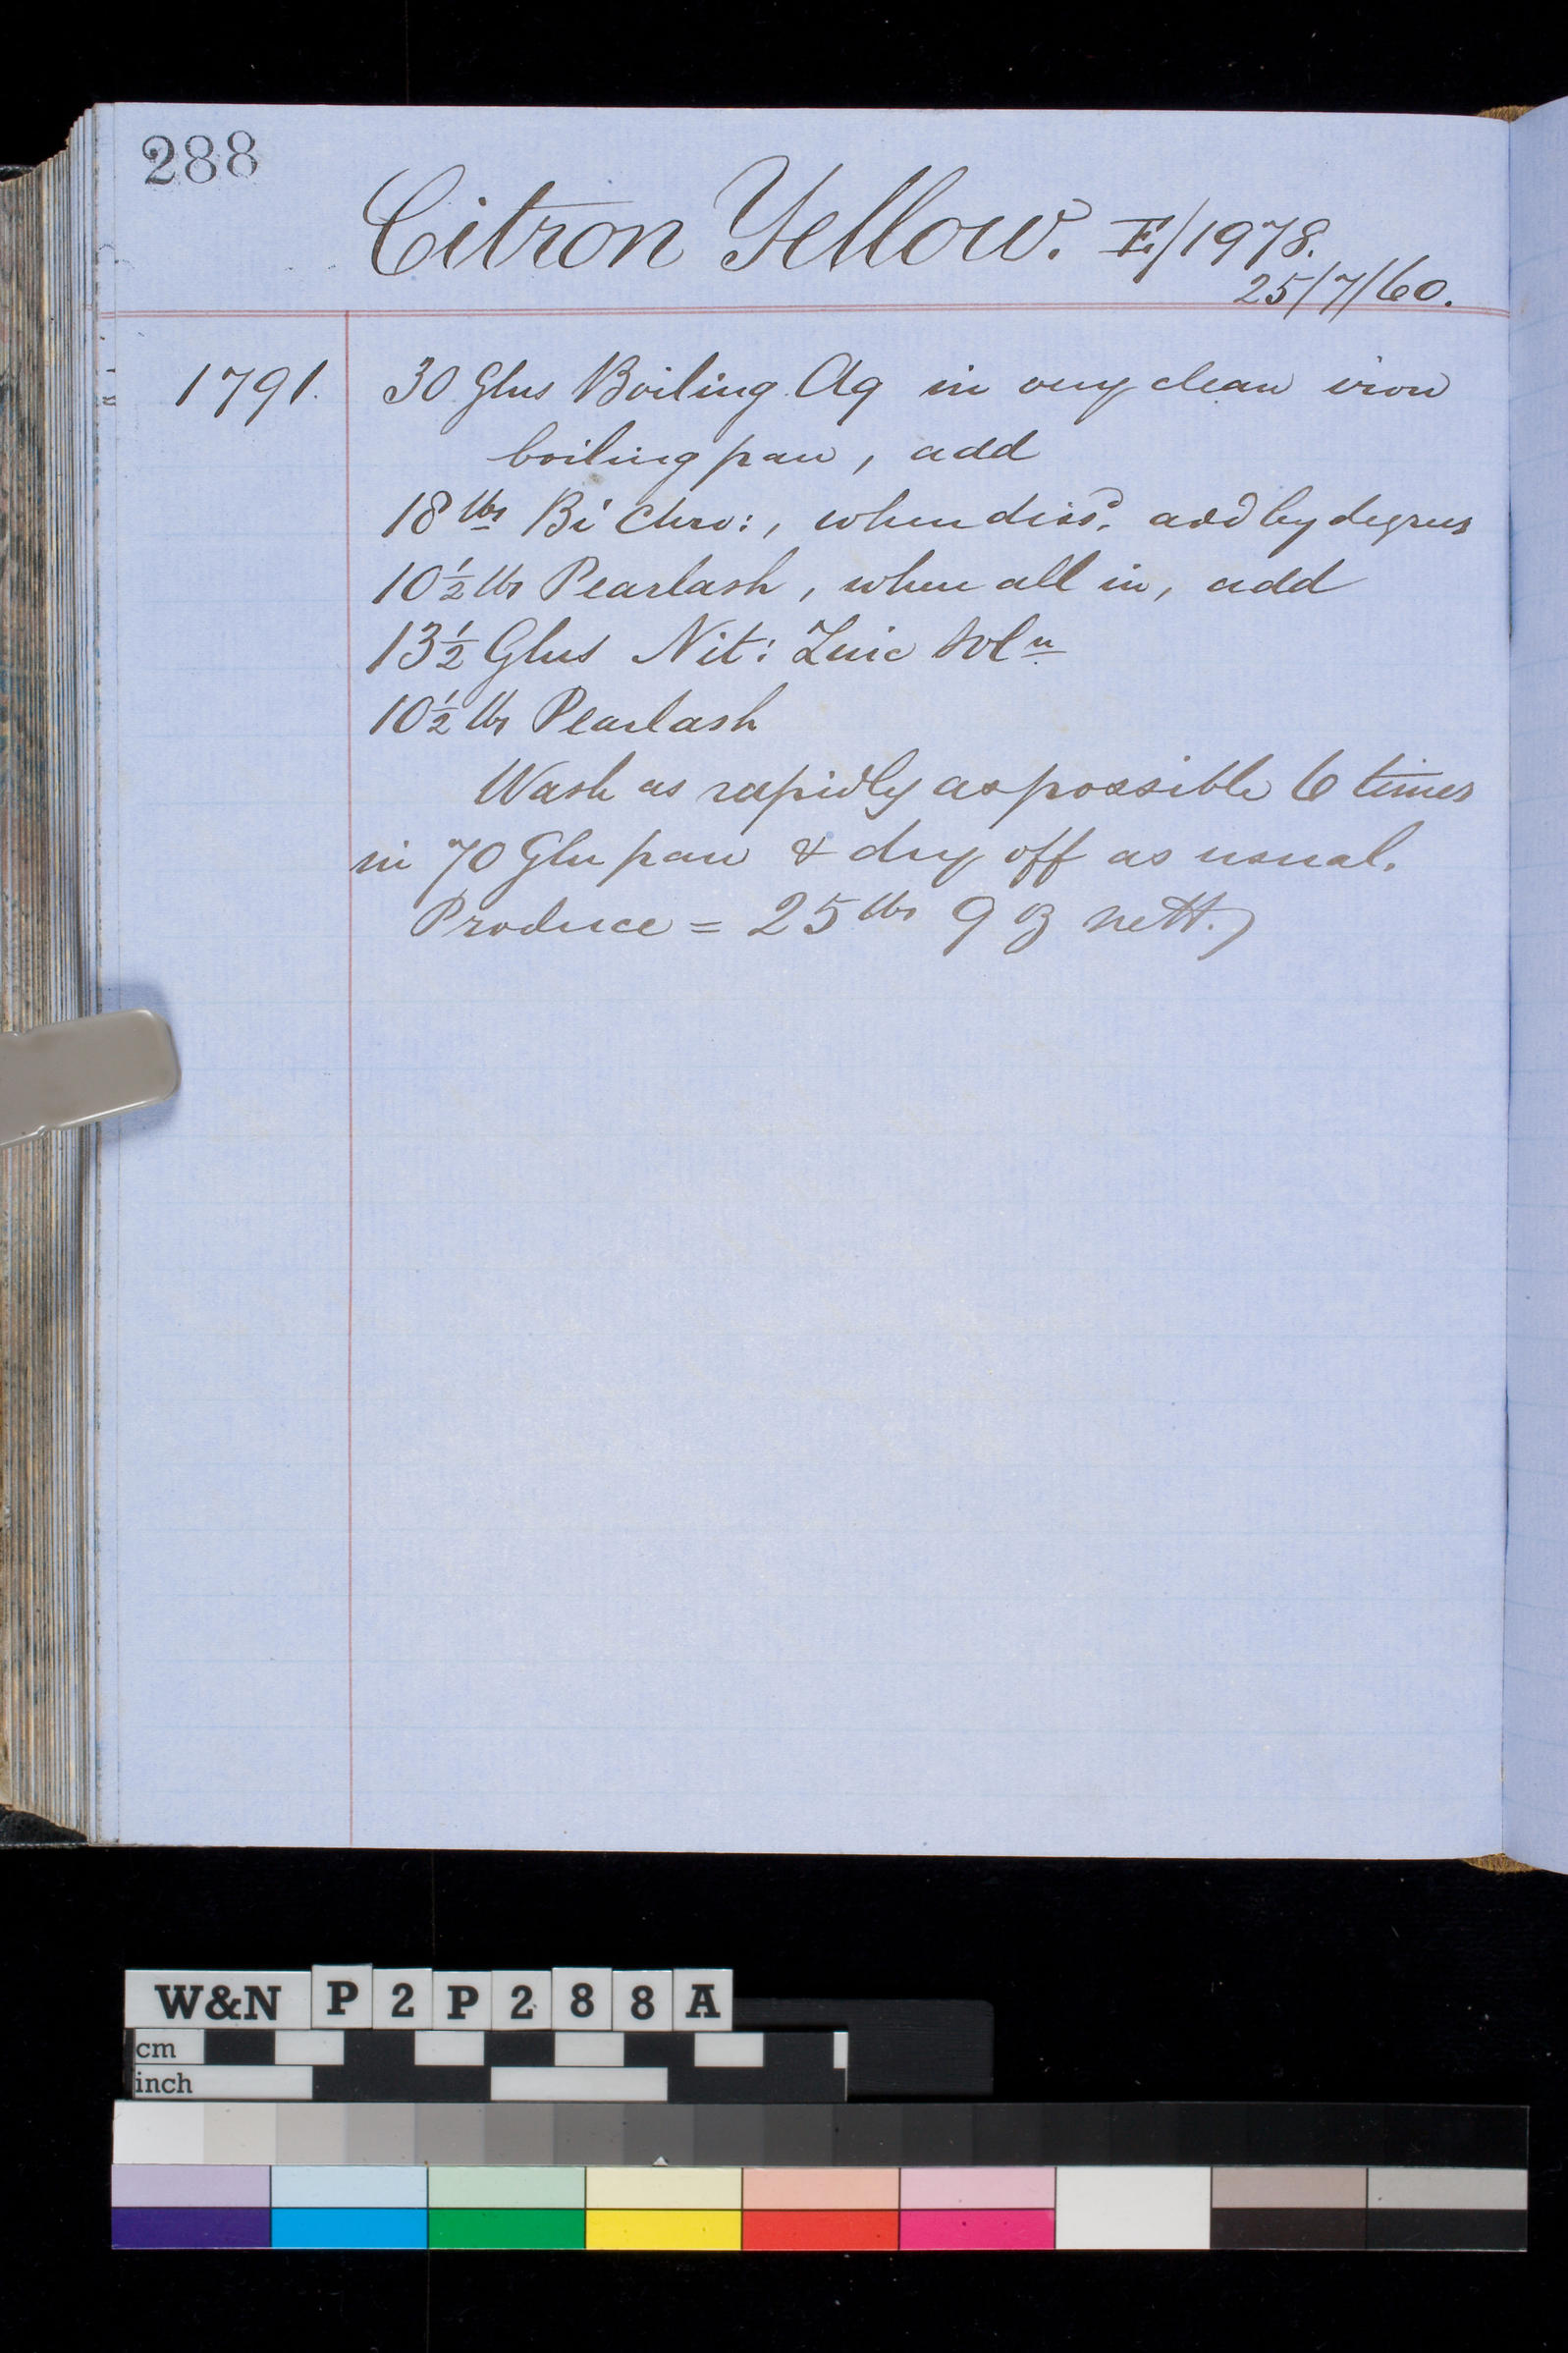 288
Citron Yellow. E/1978.
25/7/60.
1791. 30 Glns Boiling Aq in very clean iron
boiling pan, add
18 lbs Bi Chro:, when dissd. add by degrees
10½ lbs Pearlash, when all in, add
13½ Glns Nit: Zinc Soln
10½ lbs Pearlash
Wash as rapidly as possible 6 times
in 70 Gln pan & dry off as usual.
Produce = 25 lbs 9 oz nett.
W&N P2P288A
cm
inch